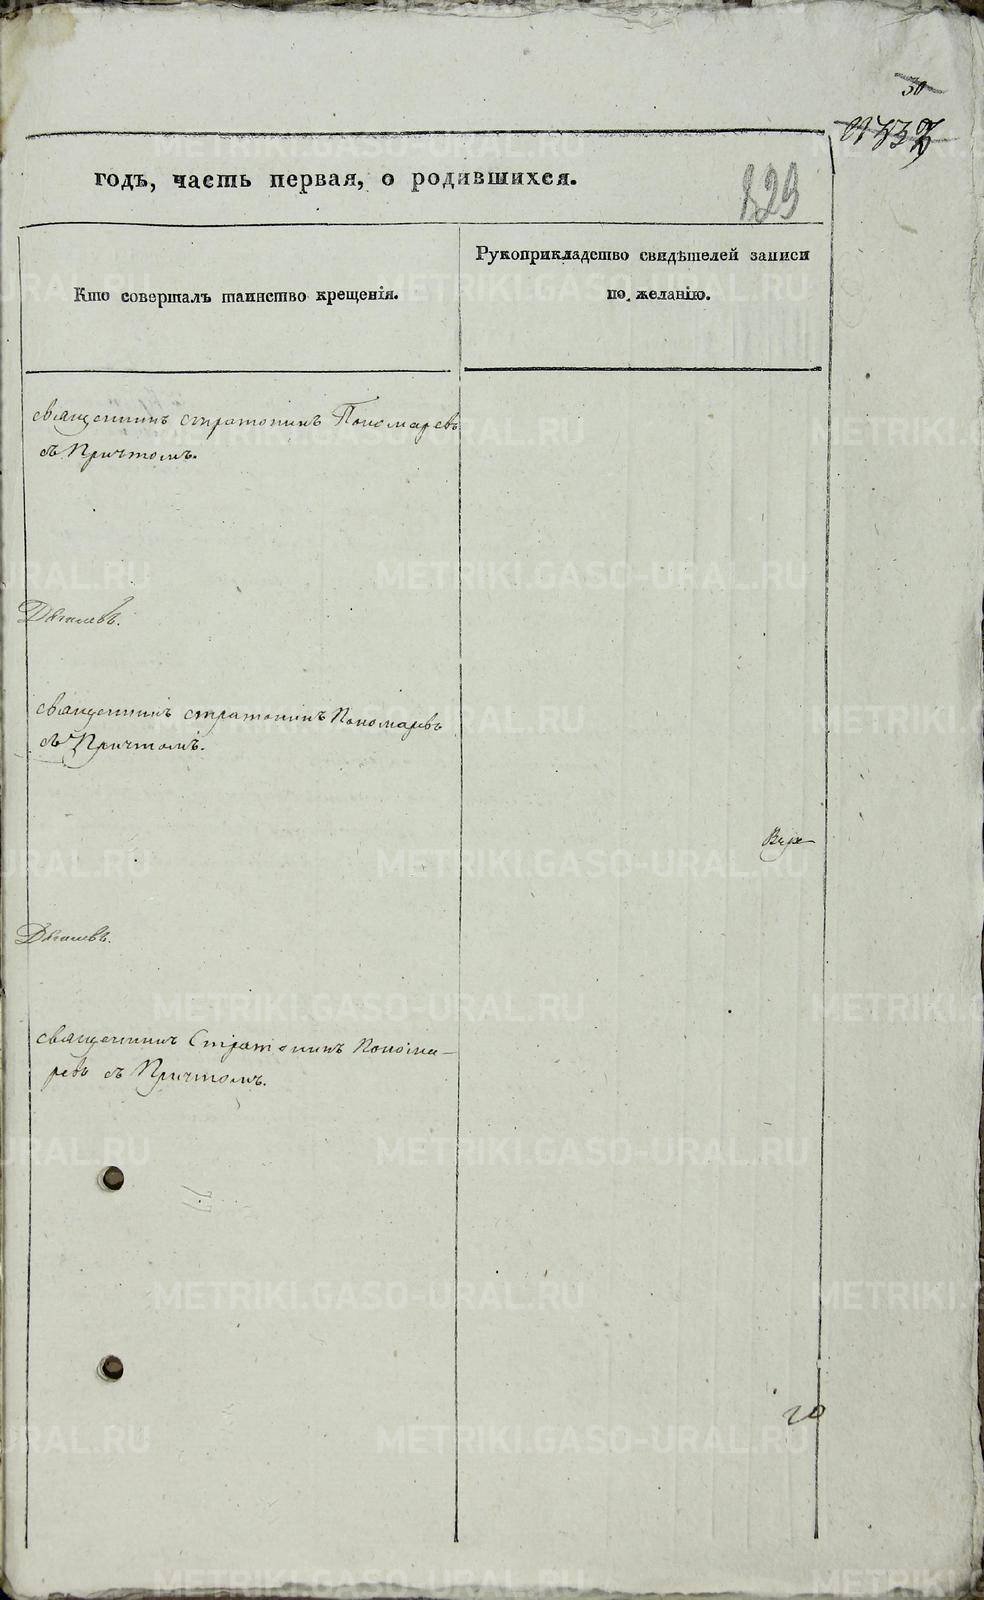 30
годъ, часть первая, о родившихся.
829
Кто совершалъ таинство крещенія.
Рукоприкладство свидѣтелей записи
по желанію.
священникъ стратоникъ Пономаревъ
съ Причтомъ.
священникъ стратоникъ Пономаревъ
съ Причтомъ.
священникъ Стратоникъ Понома-
ревъ съ Причтомъ.
20
METRIKI.GASO-URAL.RU